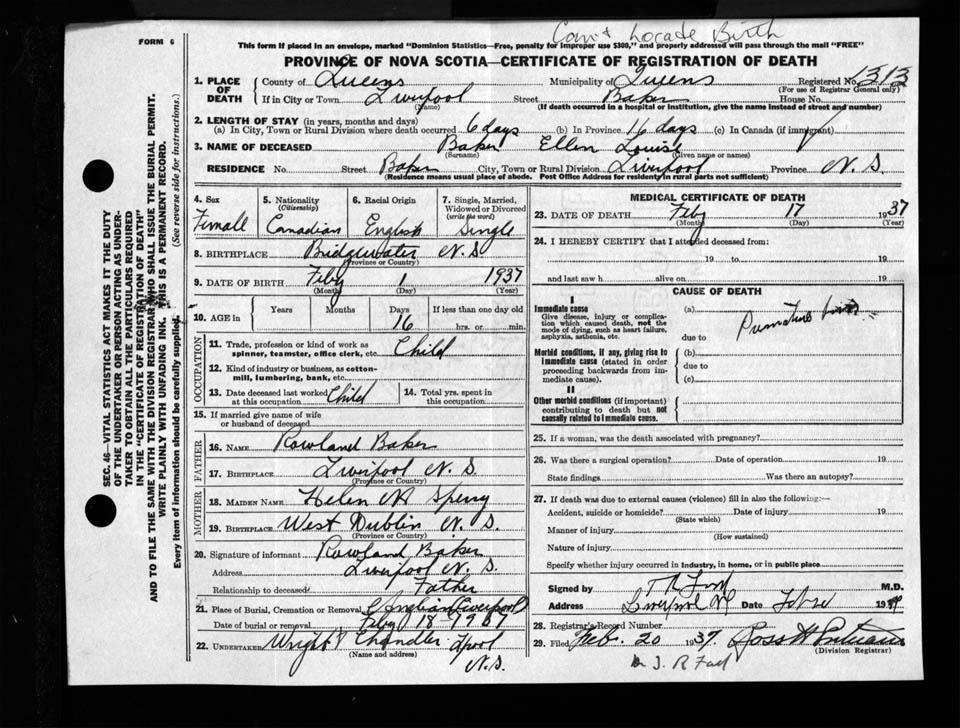 Can't Locate Birth
FORM 6
This form if placed in an envelope, marked "Dominion Statistics—Free, penalty for improper use $300," and properly addressed will pass through the mail "FREE"
PROVINCE OF NOVA SCOTIA—CERTIFICATE OF REGISTRATION OF DEATH
1. PLACE OF DEATH County of Queens Municipality of Queens Registered No. 1313
(For use of Registrar General only)
If in City or Town Liverpool Street Baker House No.
(Name) (If death occurred in a hospital or institution, give the name instead of street and number)
2. LENGTH OF STAY (in years, months and days)
(a) In City, Town or Rural Division where death occurred 6 days (b) In Province 16 days (c) In Canada (if immigrant)
3. NAME OF DECEASED Baker Ellen Louise
(Surname) (Given name or names)
RESIDENCE No. Street Baker City, Town or Rural Division Liverpool Province N. S.
(Residence means usual place of abode. Post Office Address for residents in rural parts not sufficient)
4. Sex Female
5. Nationality (Citizenship) Canadian
6. Racial Origin English
7. Single, Married, Widowed or Divorced (write the word) Single
8. BIRTHPLACE Bridgewater N. S
(Province or Country)
9. DATE OF BIRTH Feby 1 1937
(Month) (Day) (Year)
10. AGE in Years Months Days 16 If less than one day old
hrs. or min.
OCCUPATION
11. Trade, profession or kind of work as spinner, teamster, office clerk, etc. Child
12. Kind of industry or business, as cotton-mill, lumbering, bank, etc.
13. Date deceased last worked at this occupation Child
14. Total yrs. spent in this occupation
15. If married give name of wife or husband of deceased
FATHER
16. NAME Rowland Baker
17. BIRTHPLACE Liverpool N. S.
(Province or Country)
MOTHER
18. MAIDEN NAME Helen M Sperry
19. BIRTHPLACE West Dublin N. S.
(Province or Country)
20. Signature of informant Rowland Baker
Address Liverpool N. S.
Relationship to deceased Father
21. Place of Burial, Cremation or Removal Liverpool
Date of burial or removal Feby 18 1937
22. UNDERTAKER Wright & Chandler Lpool
(Name and address) N. S.
MEDICAL CERTIFICATE OF DEATH
23. DATE OF DEATH Feby 17 1937
(Month) (Day) (Year)
24. I HEREBY CERTIFY that I attended deceased from:
19 to 19
and last saw h alive on 19
CAUSE OF DEATH
I
Immediate cause
Give disease, injury or complication which caused death, not the mode of dying, such as heart failure, asphyxia, asthenia, etc.
(a) Premature birth
due to
Morbid conditions, if any, giving rise to immediate cause (stated in order proceeding backwards from immediate cause).
(b)
due to
(c)
II
Other morbid conditions (if important) contributing to death but not causally related to immediate cause.
25. If a woman, was the death associated with pregnancy?
26. Was there a surgical operation? Date of operation 19
State findings Was there an autopsy?
27. If death was due to external causes (violence) fill in also the following:—
Accident, suicide or homicide? Date of injury 19
(State which)
Manner of injury
(How sustained)
Nature of injury
Specify whether injury occurred in industry, in home, or in public place
Signed by M.D.
Address Liverpool NS Date 19
28. Registrar's Record Number
29. Filed Feb. 20 1937.
(Division Registrar)
SEC. 46—VITAL STATISTICS ACT MAKES IT THE DUTY
OF THE UNDERTAKER OR PERSON ACTING AS UNDER-
TAKER TO OBTAIN ALL THE PARTICULARS REQUIRED
IN THE "CERTIFICATE OF REGISTRATION OF DEATH"
AND TO FILE THE SAME WITH THE DIVISION REGISTRAR WHO SHALL ISSUE THE BURIAL PERMIT.
WRITE PLAINLY WITH UNFADING INK. THIS IS A PERMANENT RECORD.
Every item of information should be carefully supplied. (See reverse side for instructions.)